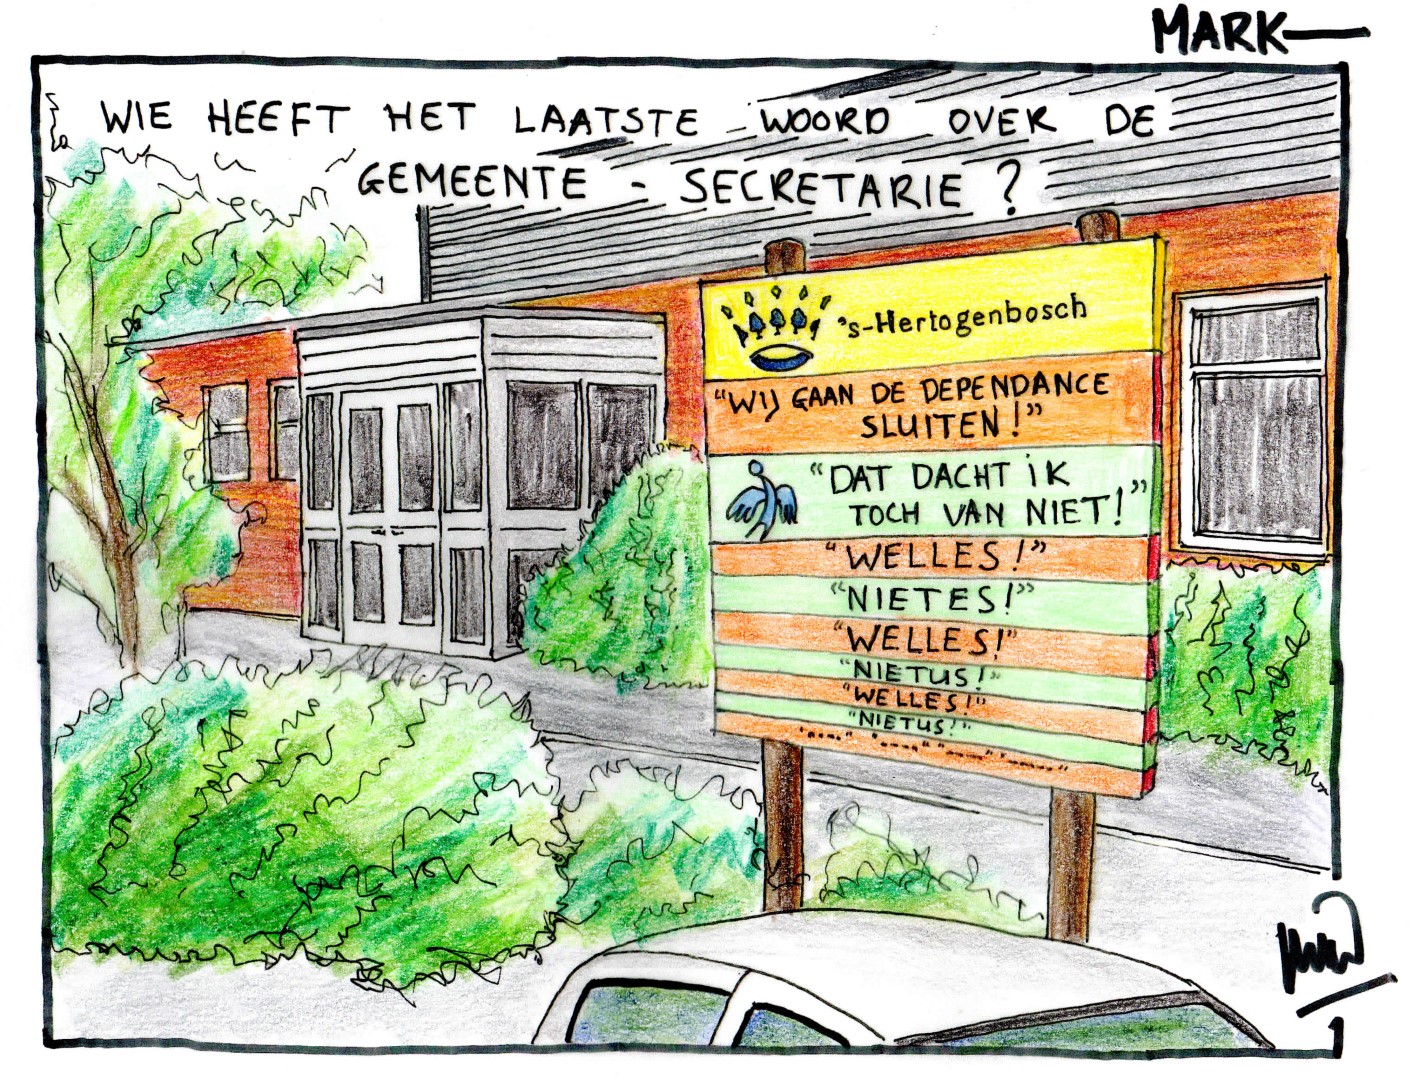 MARK
WIE HEEFT HET LAATSTE WOORD OVER DE
GEMEENTE - SECRETARIE ?
's-Hertogenbosch
"WIJ GAAN DE DEPENDANCE
SLUITEN!"
"DAT DACHT iK
TOCH VAN NIET!"
"WELLES!"
"NIETES!"
"WELLES!"
"NIETUS!"
"WELLES!"
"NIETUS!"